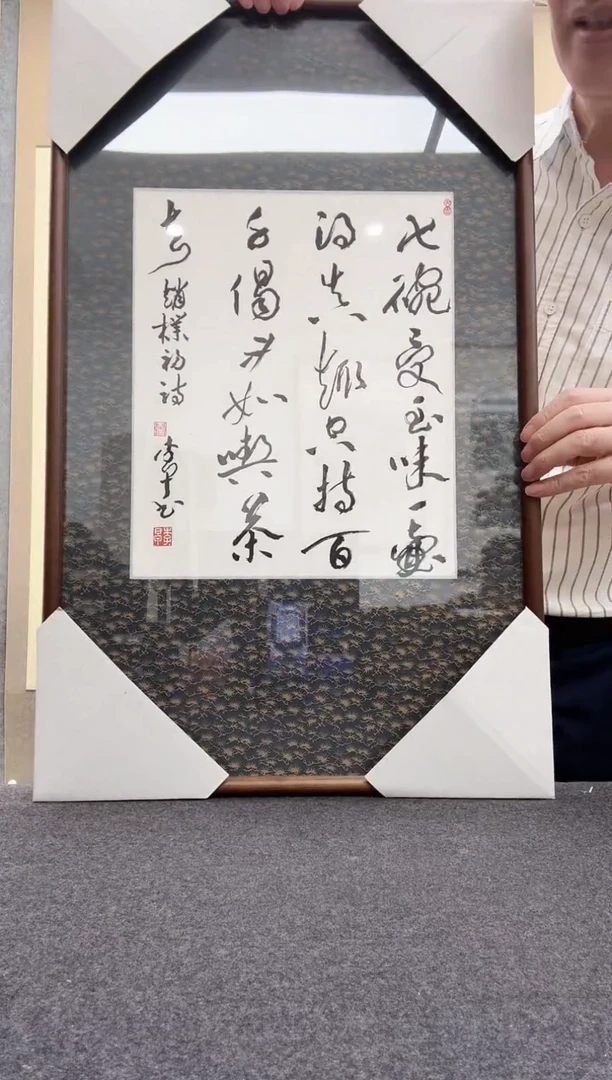 七碗受至味一壶
得真趣空持百
千偈不如喫茶
去 趙樸初詩 李军书